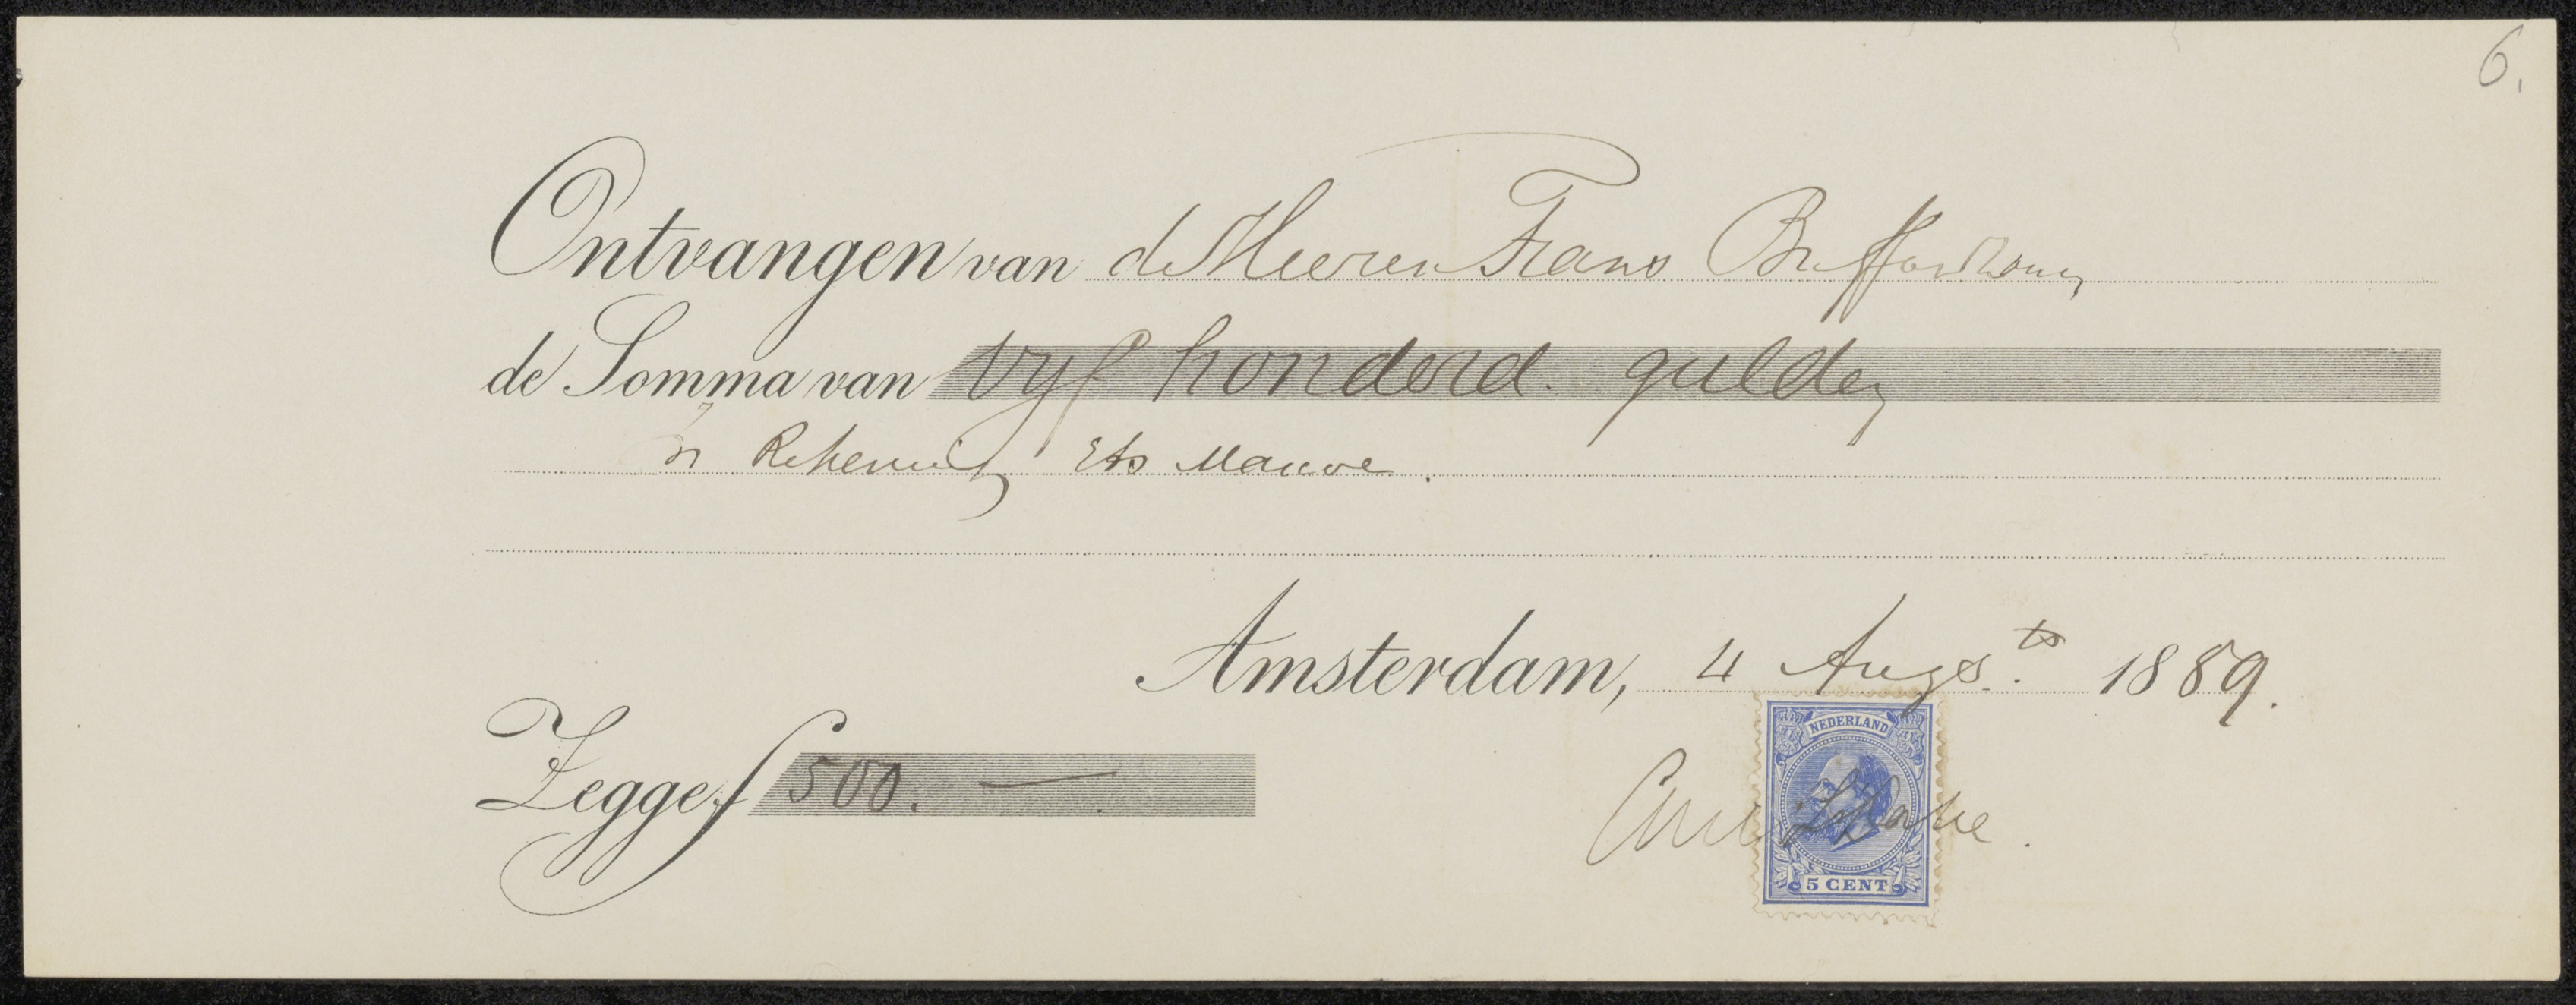 6.
Ontvangen van de Heeren Frans Buffa & Zonen
de Somma van Vyf honderd. gulden
in Rekening Ets Mauve.
Amsterdam, 4 Augs.ts 1889.
Zegge f 500. —
NEDERLAND
5 CENT